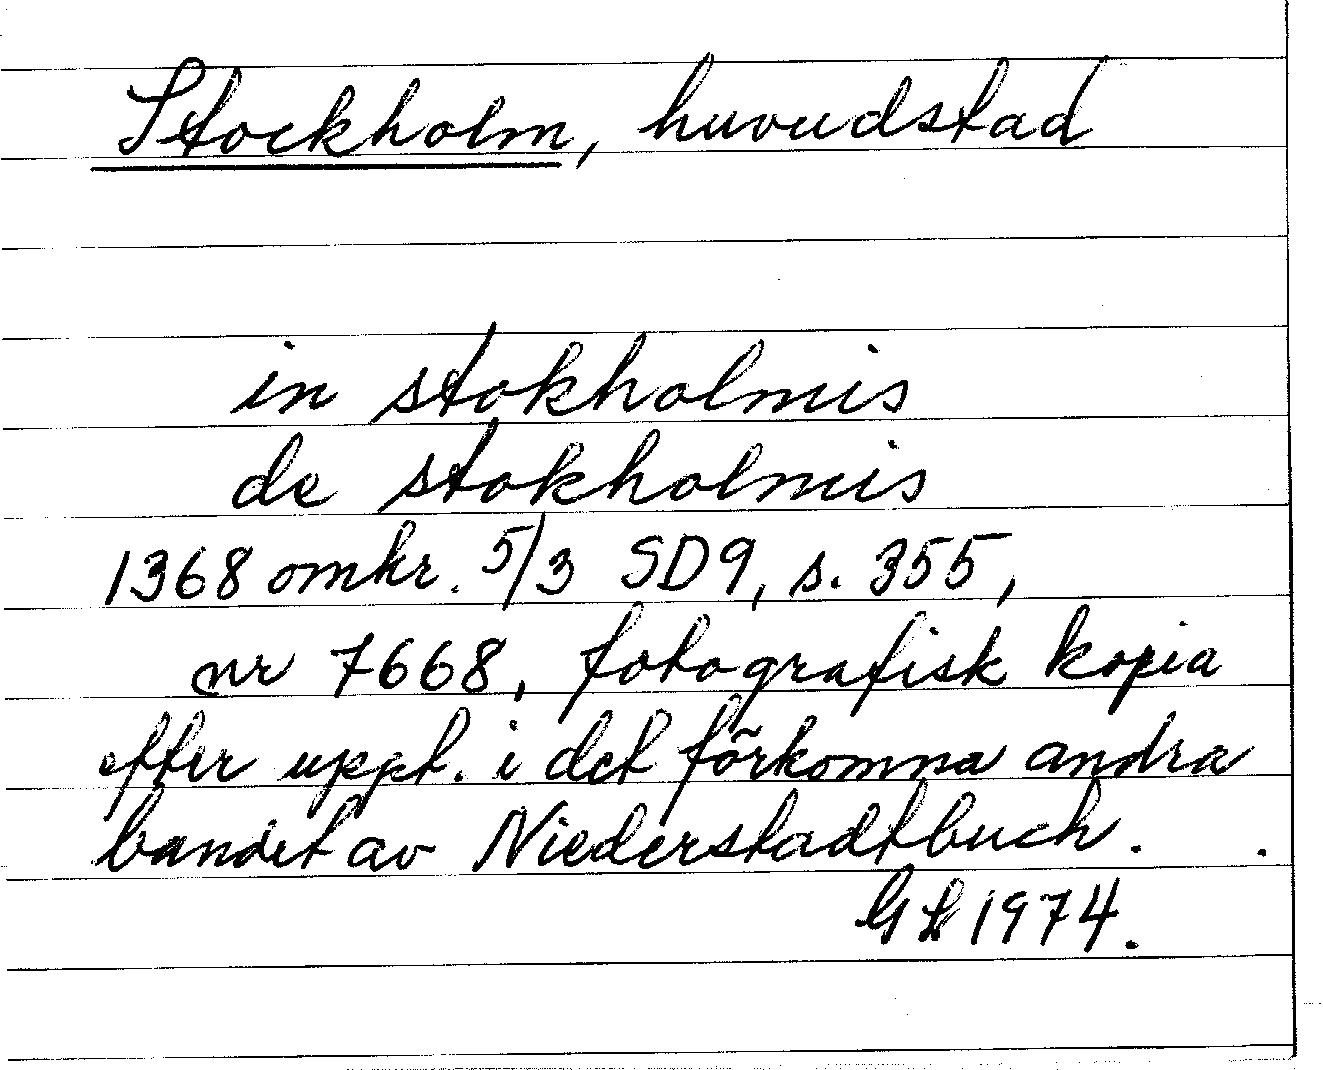 Stockholm, huvudstad
in stokholmis
de stokholmis
1368 omkr. 5/3 SD9, s. 355,
nr 7668, fotografisk kopia
efter uppt. i det förkomna andra
bandet av Niederstadtbuch.
1974.